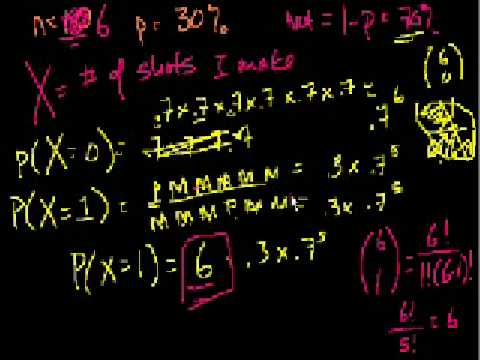 n= 6 p= 30% not = 1-P= 70%
X = # of shots I make
.7 x .7 x .7 x .7 x .7 x .7 =
.7⁶
(6 0)
P(X=0)=
P(X=1) = P M M M M M = .3 x .7⁵
M M M P M M = .3 x .7⁵
P(X=1) = 6 .3 x .7⁵
(6 1) = 6! / 1!(6-1)!
6!/5! = 6